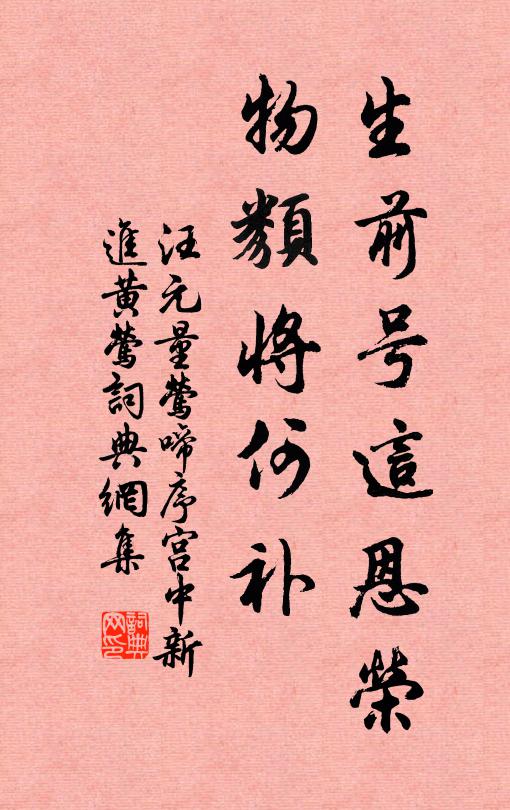 生前号這恩榮
物類將何补
汪元量鶯啼序宫中新
進黃鶯詞典網集
詞典
网印